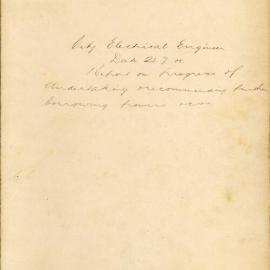 City Electrical Engineer
Date 25.7.
Report on Progress of
Undertaking & recommending further
borrowing powers